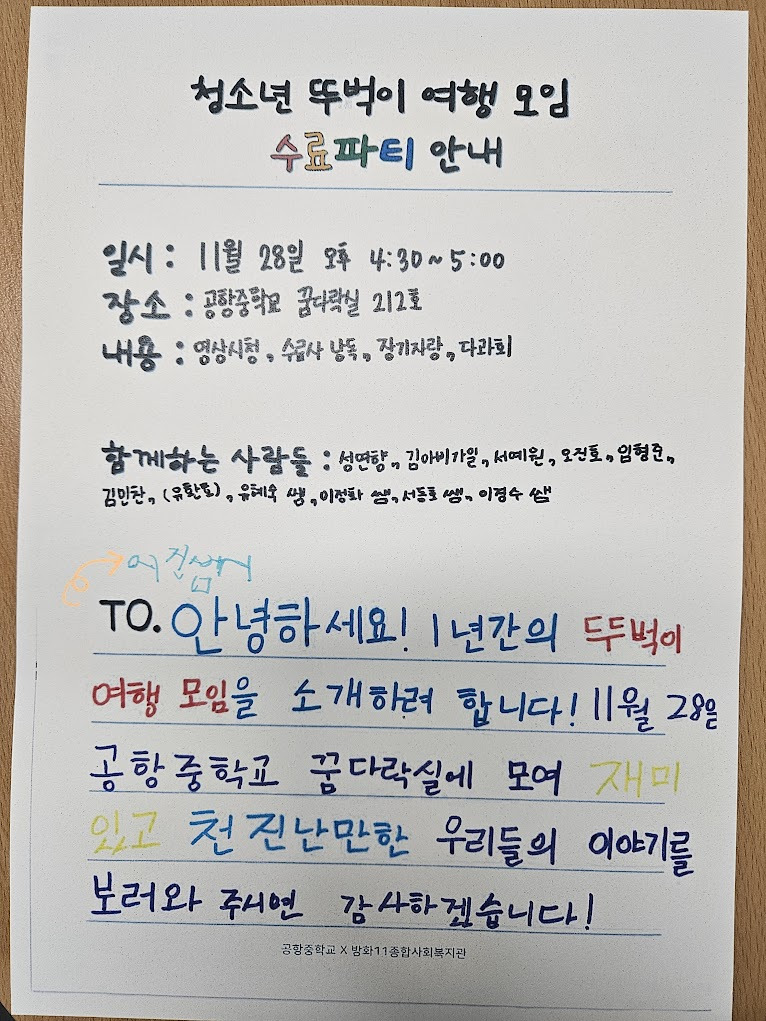 청소년 뚜벅이 여행 모임
수료파티 안내
일시 : 11월 28일 오후 4:30~5:00
장소 : 공항중학교 꿈다락실 212호
내용 : 영상시청, 수료사 낭독, 장기자랑, 다과회
함께하는 사람들 : 성연향, 김아비가일, 서예원, 오진호, 임형준,
김민찬, (유환호), 유혜숙 쌤, 이정화 쌤, 서동호 쌤, 이경수 쌤
TO. 안녕하세요! 1년간의 뚜벅이
여행 모임을 소개하려 합니다! 11월 28일
공항중학교 꿈다락실에 모여 재미
있고 천진난만한 우리들의 이야기를
보러와 주시면 감사하겠습니다!
공항중학교 X 방화11종합사회복지관